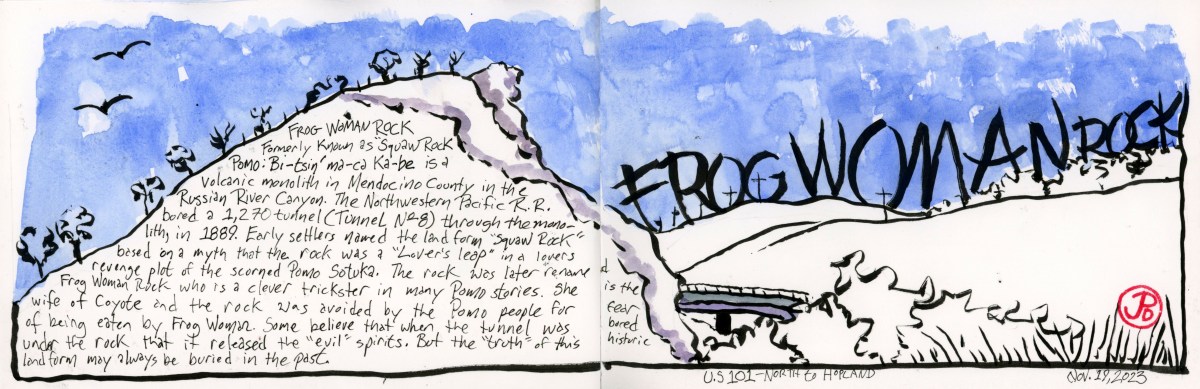 FROG WOMAN ROCK
Formerly Known as "Squaw Rock
Pomo: Bi-tsin' ma-ca Ka-be is a
volcanic monolith in Mendocino County in the
Russian River Canyon. The Northwestern Pacific R.R.
bored a 1,270 tunnel (Tunnel Nº8) through the mono-
lith, in 1889. Early settlers named the land form "Squaw Rock"
based on a myth that the rock was a "Lover's leap" in a lovers
revenge plot of the scorned Pomo Sotuka. The rock was later rename d
Frog Woman Rock who is a clever trickster in many Pomo stories. She is the
wife of Coyote and the rock was avoided by the Pomo people for fear
of being eaten by Frog Woman. Some believe that when the tunnel was bored
under the rock that it released the "evil" spirits. But the "truth" of this historic
landform may always be buried in the past.
FROG WOMAN ROCK
JPD
U.S 101-NORTH to HOPLAND
Nov. 19, 2023